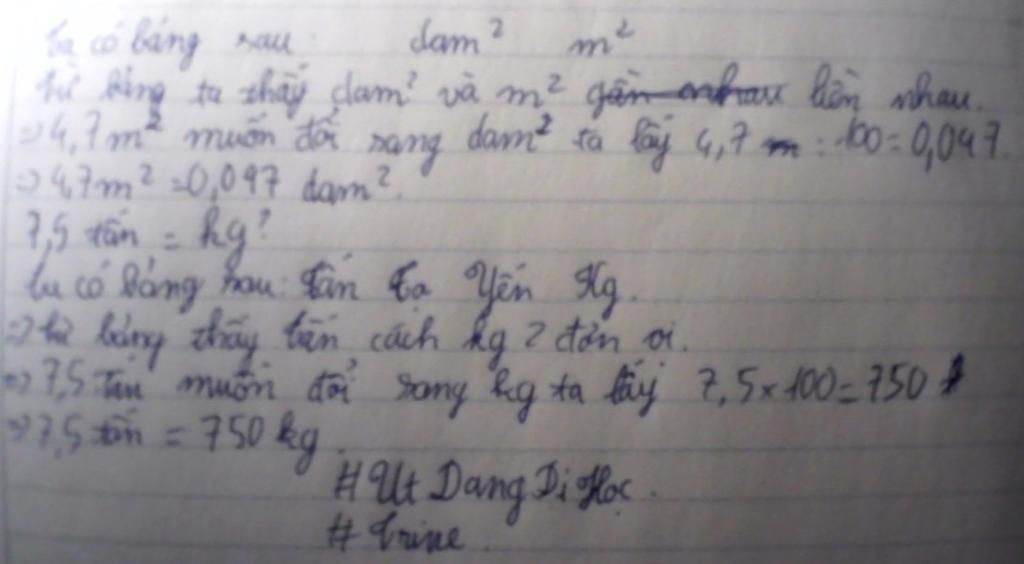 Ta có bảng sau: dam² m²
từ bảng ta thấy dam² và m² gần nhau liền nhau.
=> 4,7m² muốn đổi sang dam² ta lấy 4,7 m : 100 = 0,047.
=> 4,7m² = 0,047 dam².
7,5 tấn = kg?
Ta có bảng sau: Tấn Tạ Yến Kg.
=> từ bảng thấy tấn cách kg 2 đơn vi.
=> 7,5 tấn muốn đổi sang kg ta lấy 7,5 x 100 = 750
=> 7,5 tấn = 750 kg.
# Ut Dang Di Học.
#